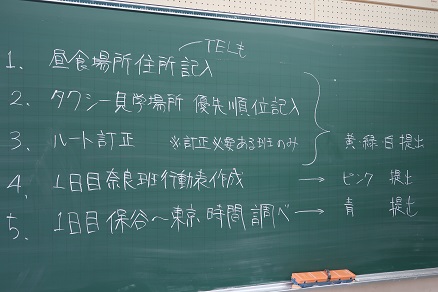 TELも
1. 昼食場所住所記入
2. タクシー見学場所 優先順位記入
3. ルート訂正 ※訂正必要ある班のみ 黄・緑 白 提出
4. 1日目奈良班行動表作成 → ピンク 提出
5. 1日目 保谷〜東京 時間調べ → 青 提出